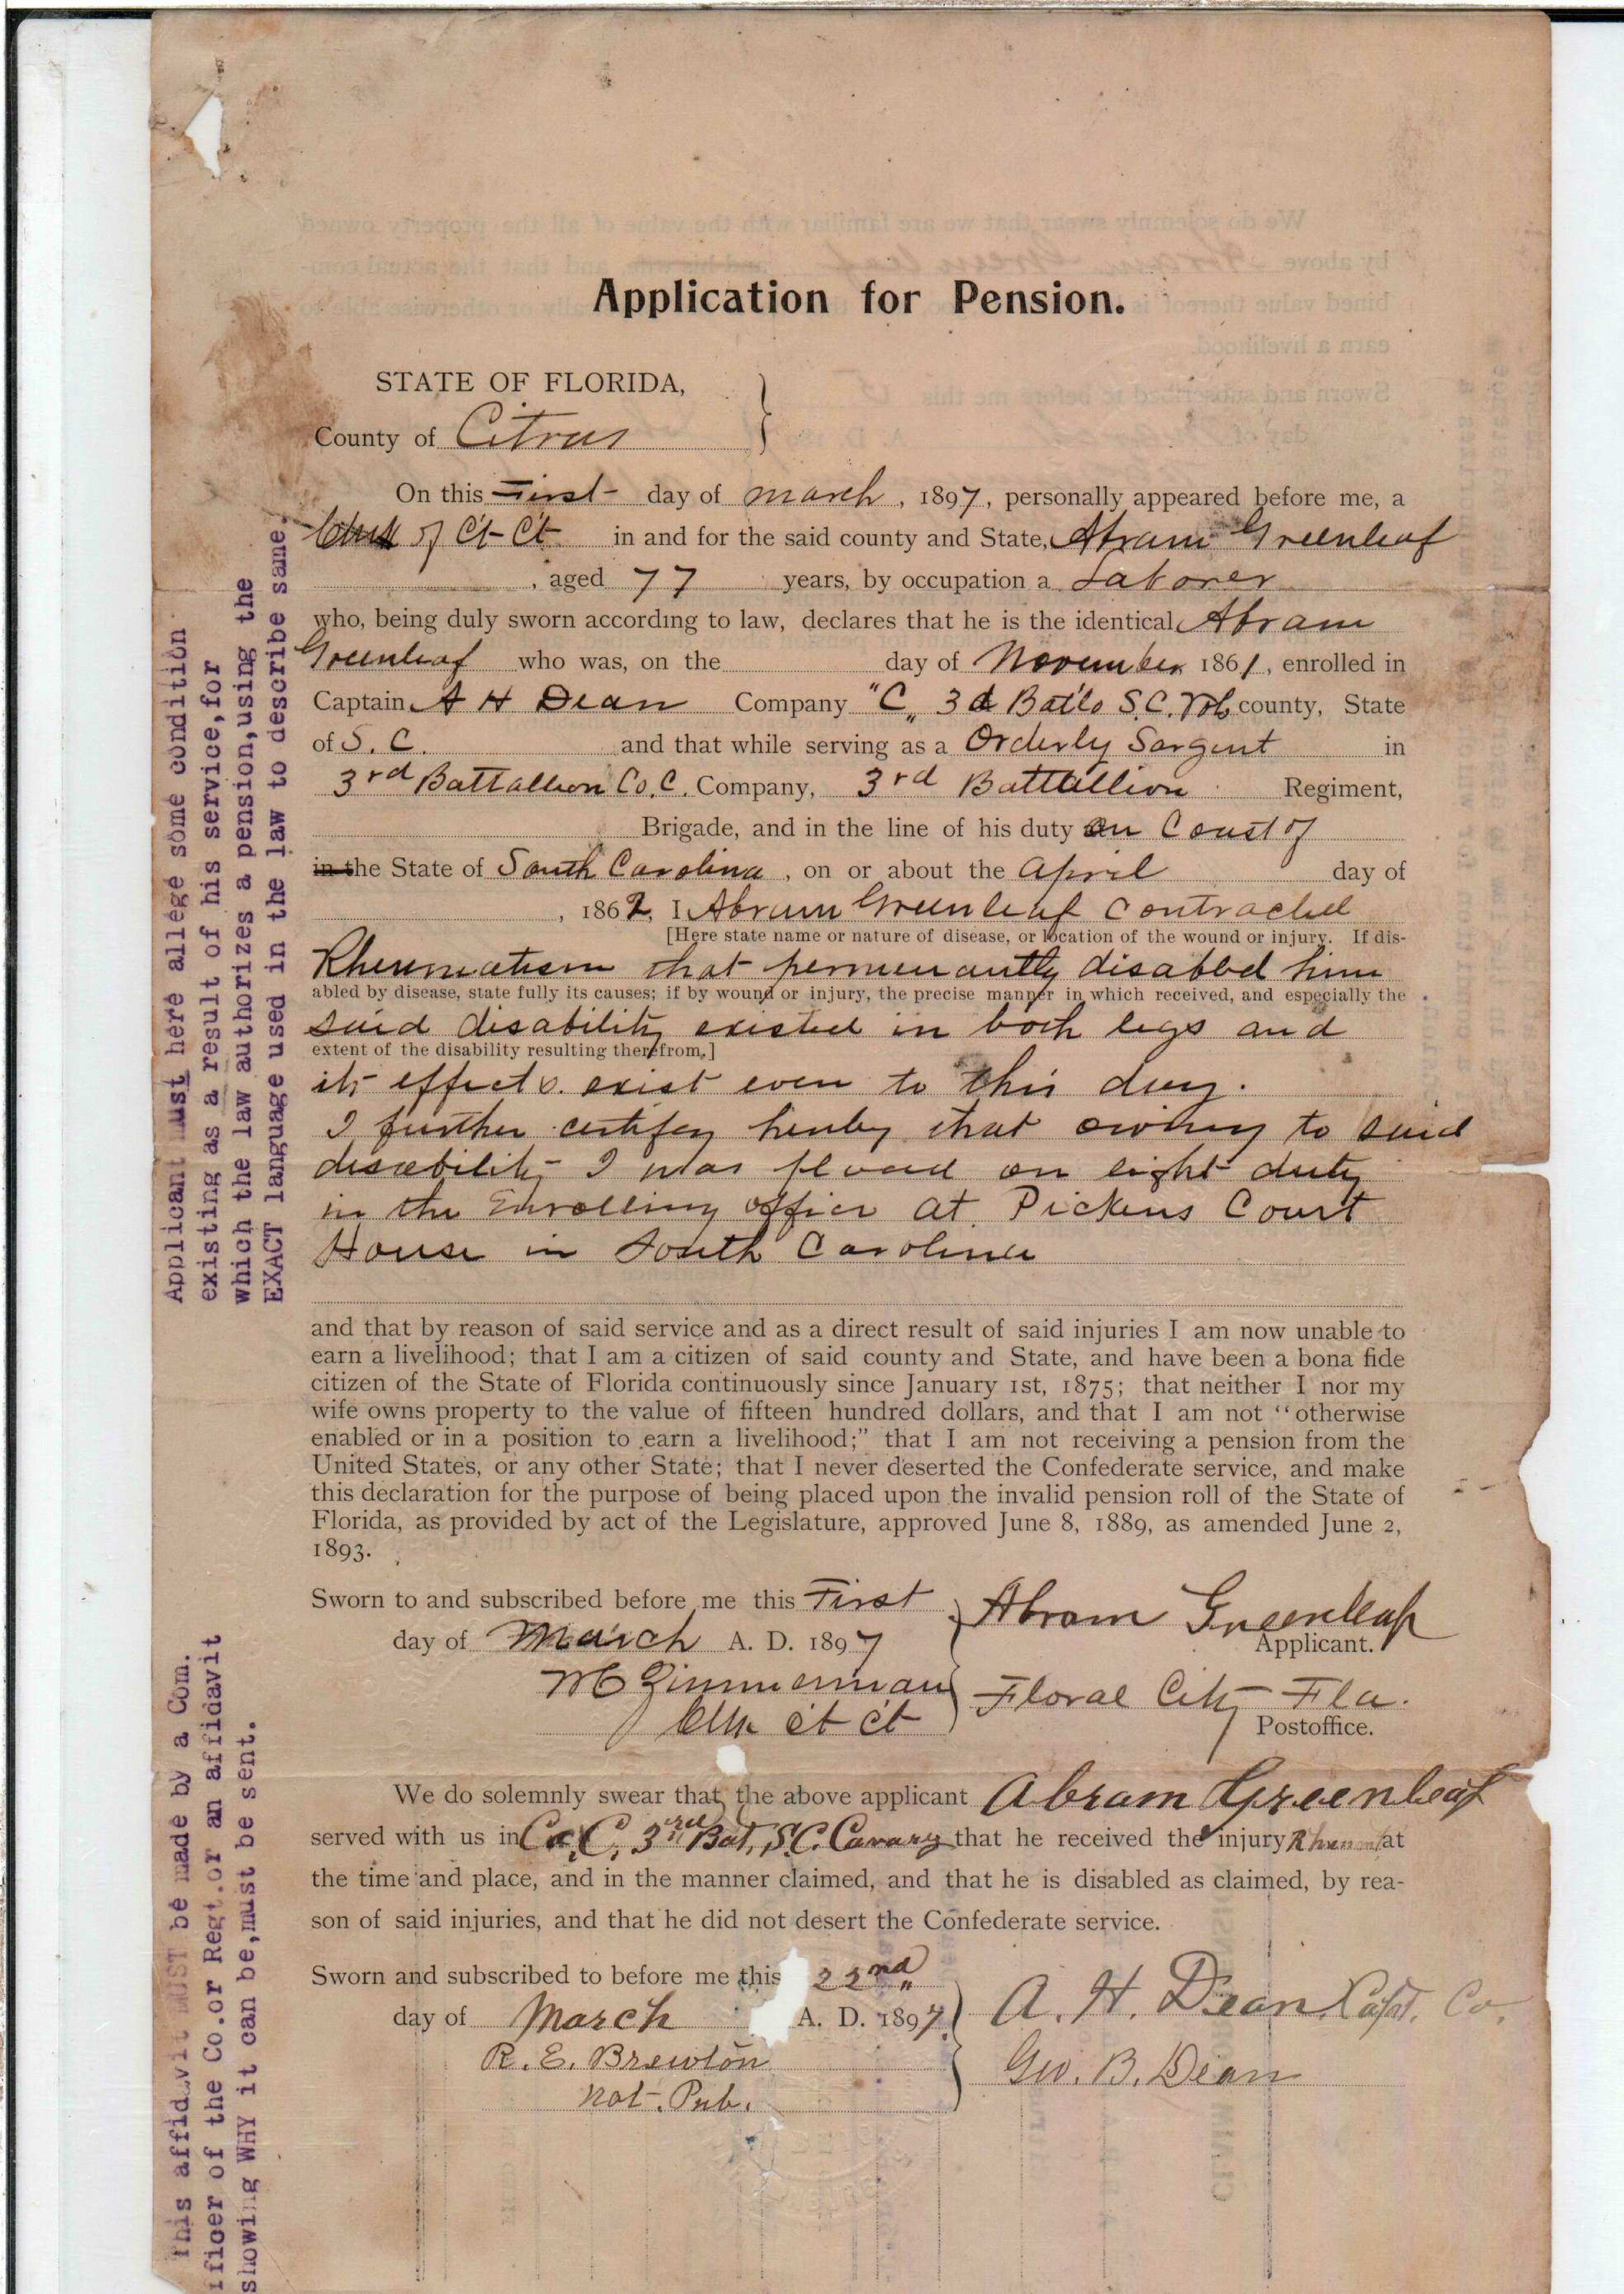 Application for Pension.
STATE OF FLORIDA,
County of Citrus
On this First day of march, 1897, personally appeared before me, a
Clerk of Ct Ct in and for the said county and State, Abram Greenleaf
, aged 77 years, by occupation a Laborer
who, being duly sworn according to law, declares that he is the identical Abram
Greenleaf who was, on the day of November 1861, enrolled in
Captain A H Dean Company "C" 3d Batlo S.C. Vols county, State
of S. C. and that while serving as a Orderly Sargent in
3rd Battallion Co. C. Company, 3rd Battallion Regiment,
Brigade, and in the line of his duty on Coust of
in the State of South Carolina, on or about the April day of
, 1862, I Abram Greenleaf Contracted
[Here state name or nature of disease, or location of the wound or injury. If dis-
Rheumatism that permenantly disabled him
abled by disease, state fully its causes; if by wound or injury, the precise manner in which received, and especially the
said disability existed in both legs and
extent of the disability resulting therefrom.]
its effects exist even to this day.
I further certify hereby that owing to said
disability I was placed on light duty
in the Enrolling office at Pickens Court
House in South Carolina
and that by reason of said service and as a direct result of said injuries I am now unable to
earn a livelihood; that I am a citizen of said county and State, and have been a bona fide
citizen of the State of Florida continuously since January 1st, 1875; that neither I nor my
wife owns property to the value of fifteen hundred dollars, and that I am not "otherwise
enabled or in a position to earn a livelihood;" that I am not receiving a pension from the
United States, or any other State; that I never deserted the Confederate service, and make
this declaration for the purpose of being placed upon the invalid pension roll of the State of
Florida, as provided by act of the Legislature, approved June 8, 1889, as amended June 2,
1893.
Sworn to and subscribed before me this First
day of March A. D. 1897
Abram Greenleaf
Applicant.
M Zimmerman
Clk Ct Ct
Floral City Fla.
Postoffice.
We do solemnly swear that the above applicant Abram Greenleaf
served with us in Co. C, 3rd Bat, S.C. Cavary that he received the injury at
the time and place, and in the manner claimed, and that he is disabled as claimed, by rea-
son of said injuries, and that he did not desert the Confederate service.
Sworn and subscribed to before me this 22nd
day of March A. D. 1897.
R. E. Brewton
Not. Pub.
A. H. Dean Capt. Co.
Geo. B. Dean
Applicant must here allege some condition
existing as a result of his service, for
which the law authorizes a pension, using the
EXACT language used in the law to describe same.
This affidavit MUST be made by a Com.
fficer of the Co. or Regt. or an affidavit
showing WHY it can be, must be sent.